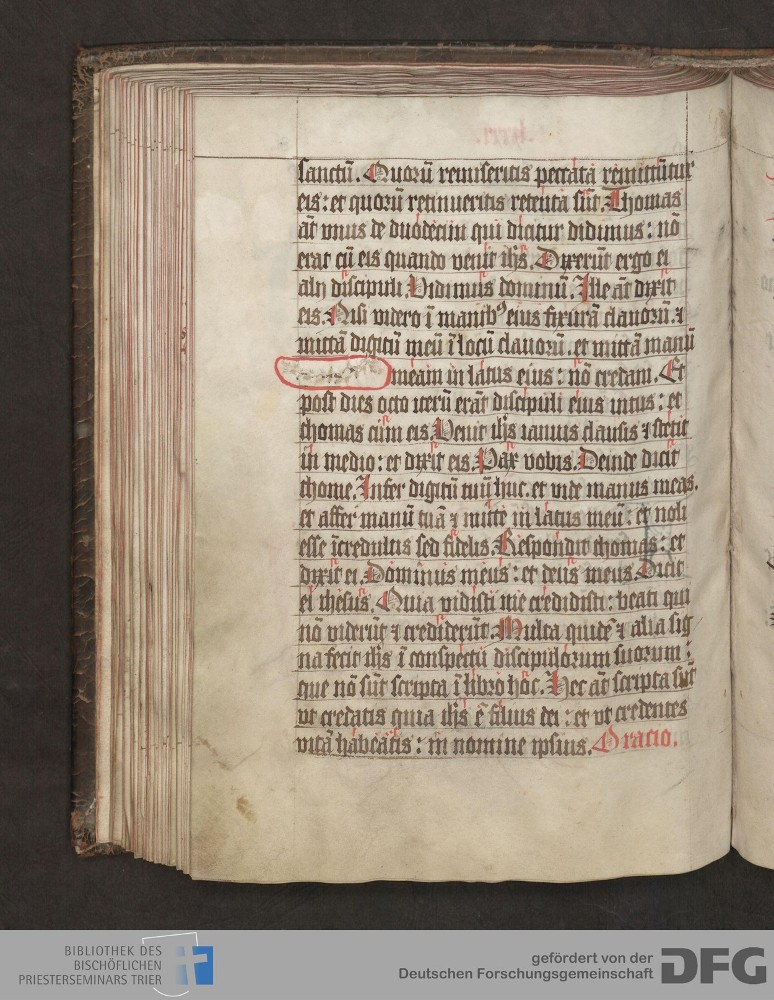 sanctū. Quorū remiseritis peccata remittūtur
eis: et quorū retinueritis retenta sūt. Thomas
āt vnus de duodecim qui dicitur didimus: nō
erat cū eis quando venit ihs̄. Dixerūt ergo ei
alij discipuli. Vidimus dominū. Ille āt dixit
eis. Nisi videro ī manibꝰ eius fixurā clauorū. ⁊
mittā digitū meū ī locū clauorū. et mittā manū
meam in latus eius: nō credam. Et
post dies octo iterū erāt discipuli eius intus: et
thomas cum eis. Venit ihs̄ ianuis clausis ⁊ stetit
in medio: et dixit eis. Pax vobis. Deinde dicit
thome. Infer digitū tuū huc. et vide manus meas.
et affer manū tuā ⁊ mitte in latus meū: et noli
esse īcredulus sed fidelis. Respondit thomas: et
dixit ei. Dominus meus: et deus meus. Dicit
ei ihesus. Quia vidisti me credidisti: beati qui
nō viderūt ⁊ crediderūt. Multa quidē ⁊ alia sig
na fecit ihs̄ ī conspectu discipulorum suorum:
que nō sūt scripta ī libro hoc. Hec āt scripta sūt
vt credatis quia ihs̄ ē filius dei: et vt credentes
vitā habeatis: in nomine ipsius. Oracio.
BIBLIOTHEK DES
BISCHÖFLICHEN
PRIESTERSEMINARS TRIER
gefördert von der
Deutschen Forschungsgemeinschaft
DFG